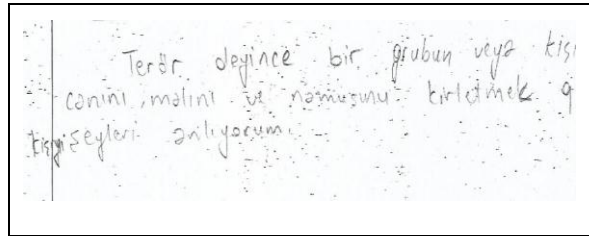 Terör deyince bir grubun veya kişi
canını, malını ve namusunu kirletmek g
şeyleri anlıyorum.